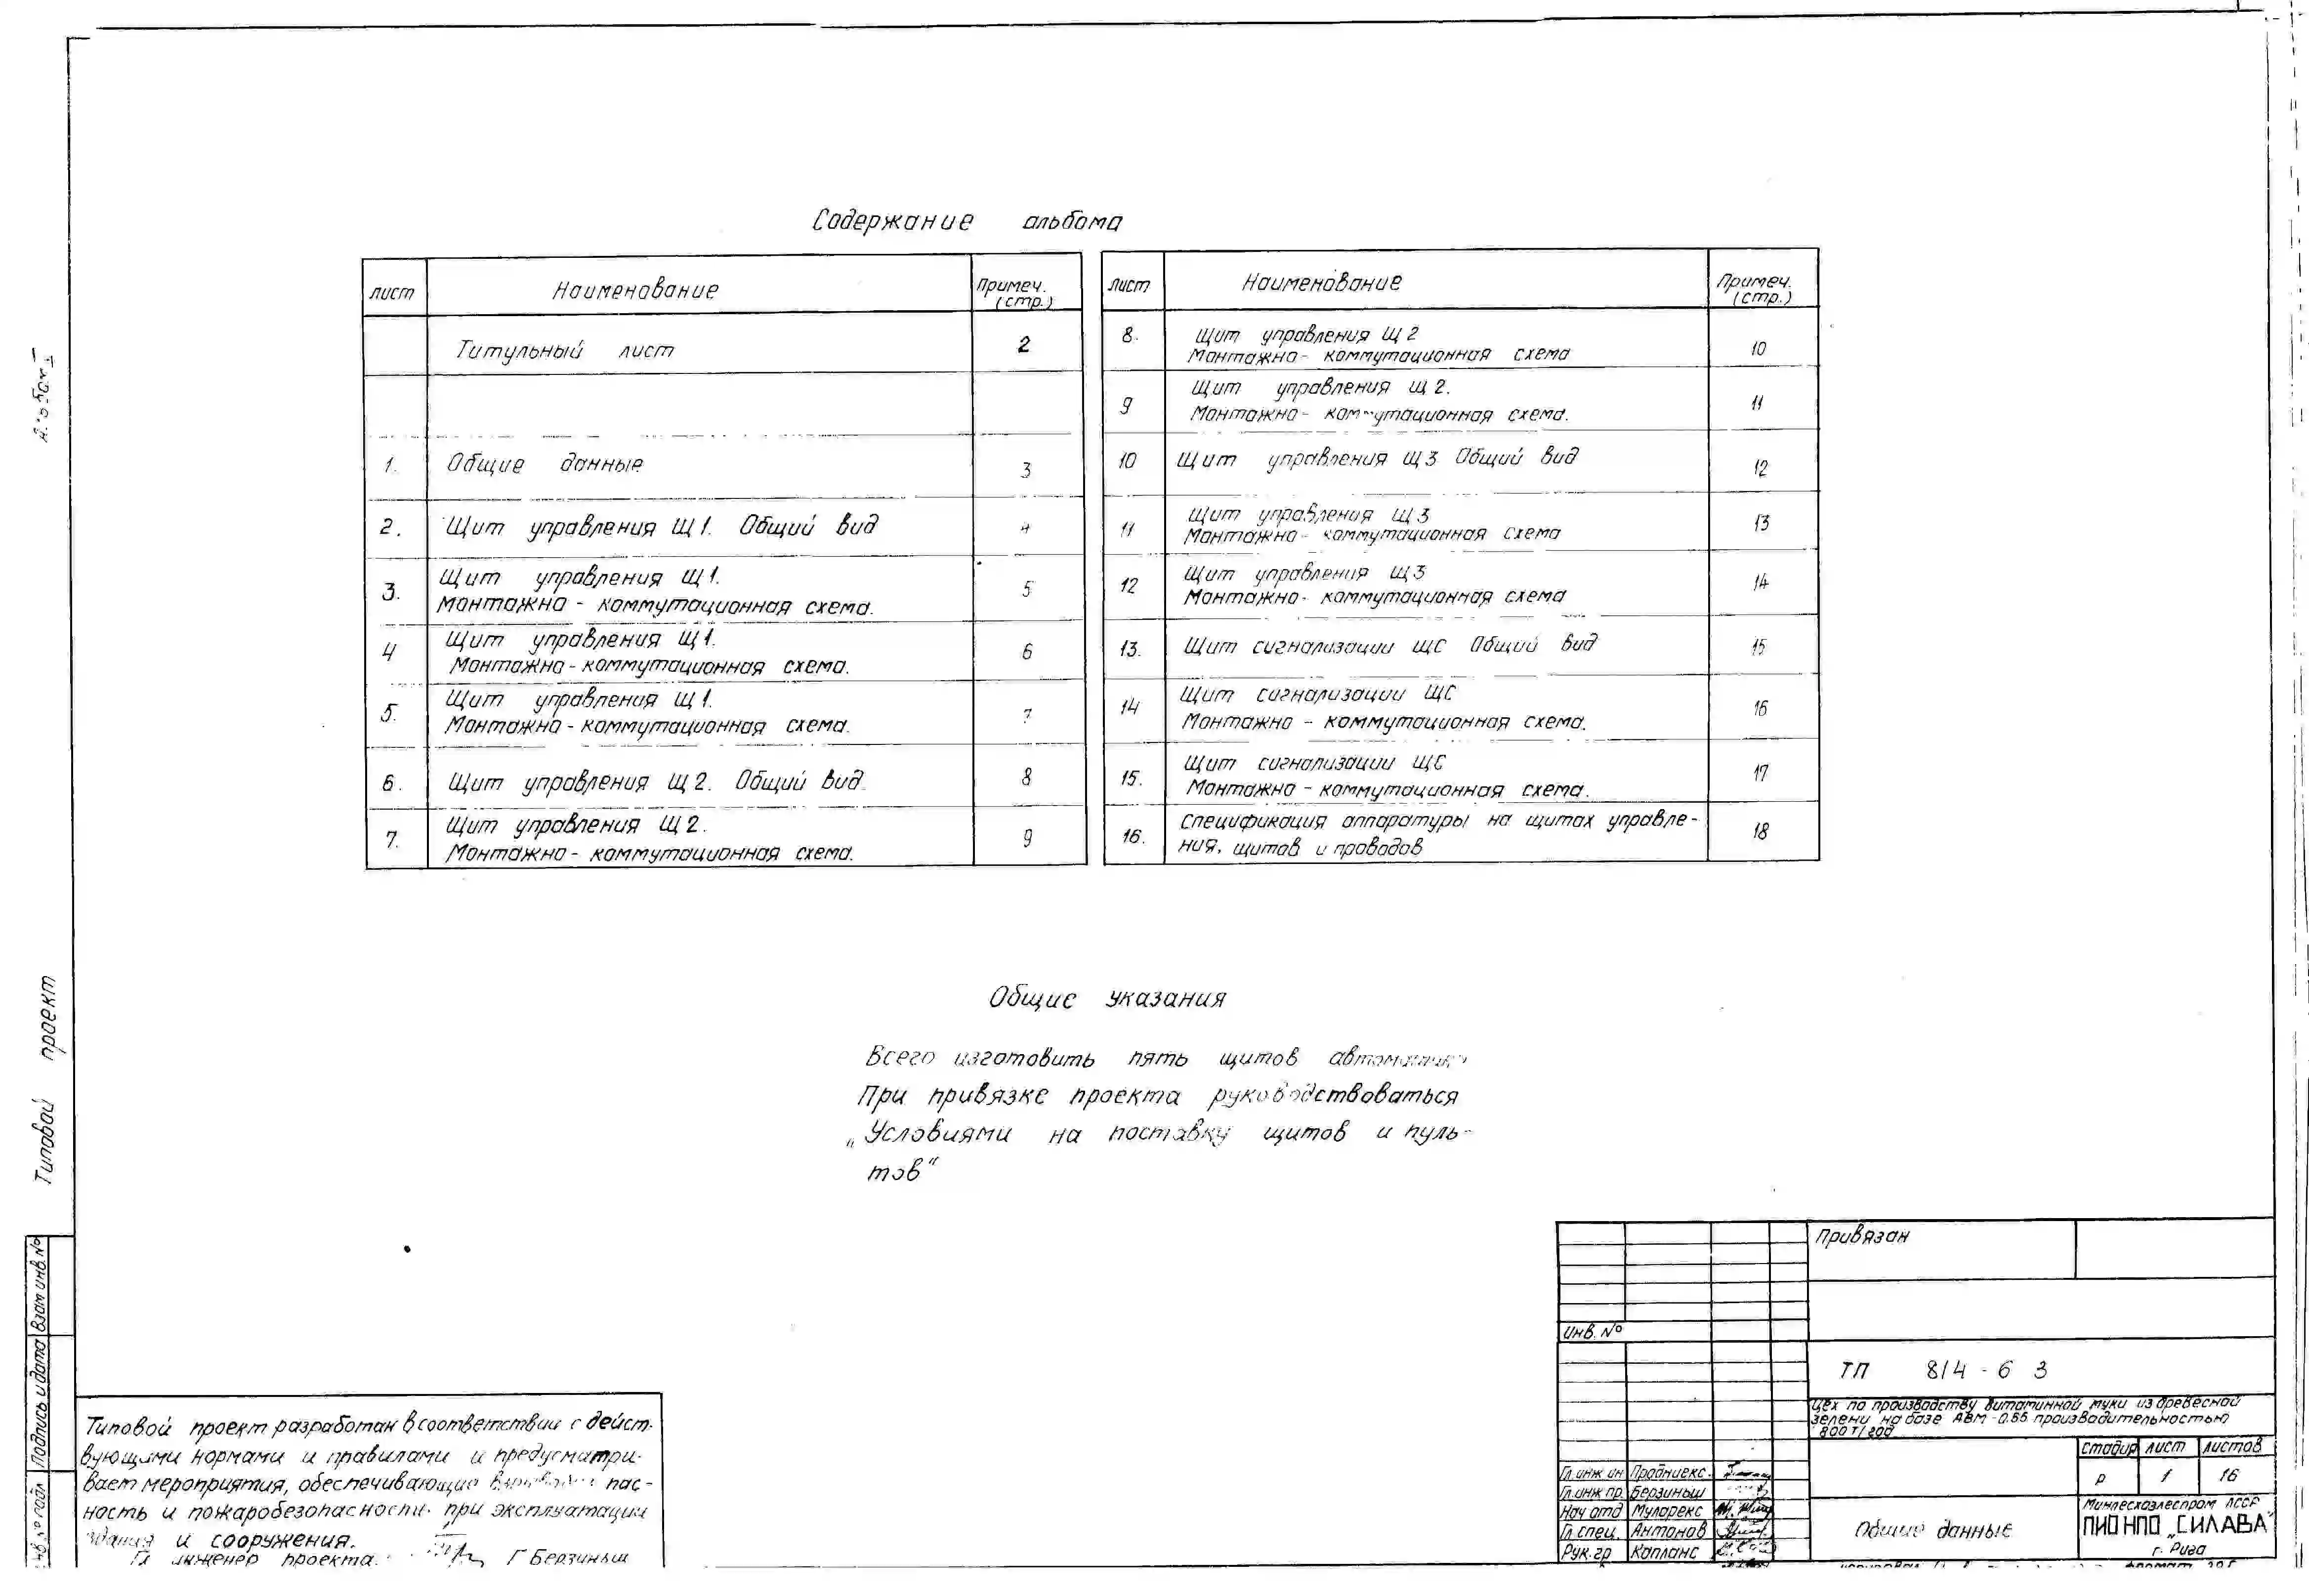 Содержание альбома
лист Наименование Примеч. (стр.)
Титульный лист 2
1. Общие данные 3
2. Щит управления Щ1. Общий вид 4
3. Щит управления Щ1.
Монтажно - коммутационная схема. 5
4 Щит управления Щ1.
Монтажно - коммутационная схема. 6
5. Щит управления Щ1.
Монтажно - коммутационная схема. 7
6. Щит управления Щ2. Общий вид 8
7. Щит управления Щ2.
Монтажно - коммутационная схема. 9
лист Наименование Примеч. (стр.)
8. Щит управления Щ2
Монтажно - коммутационная схема 10
9 Щит управления Щ2.
Монтажно - коммутационная схема. 11
10 Щит управления Щ3 Общий вид 12
11 Щит управления Щ3
Монтажно - коммутационная схема 13
12 Щит управления Щ3
Монтажно - коммутационная схема 14
13. Щит сигнализации ЩС Общий вид 15
14 Щит сигнализации ЩС
Монтажно - коммутационная схема. 16
15. Щит сигнализации ЩС
Монтажно - коммутационная схема. 17
16. Спецификация аппаратуры на щитах управле-
ния, щитов и проводов 18
Общие указания
Всего изготовить пять щитов
При привязке проекта руководствоваться
„Условиями на поставку щитов и пуль-
тов"
Типовой проект
Взам инв. №
Подпись и дата
Типовой проект разработан в соответствии с дейст-
вующими нормами и правилами и предусматри-
вает мероприятия, обеспечивающие пас-
ность и пожаробезопасность при эксплуатации
здания и сооружения.
Гл инженер проекта. Г Берзиньш
Привязан
Инв. №
ТП 814 - 6 3
Цех по производству витаминной муки из древесной
зелени на базе АВМ-0.65 производительностью
800 т/год
стадия лист листов
Р 1 16
Гл. инж ин Праdниекс.
Гл. инж пр. Берзиньш
Нач отд Муларекс
Гл. спец. Антонов
Рук. гр Капланс
Общие данные
Минлесхозлеспром ЛССР
ПИО НПО „СИЛАВА"
г. Рига